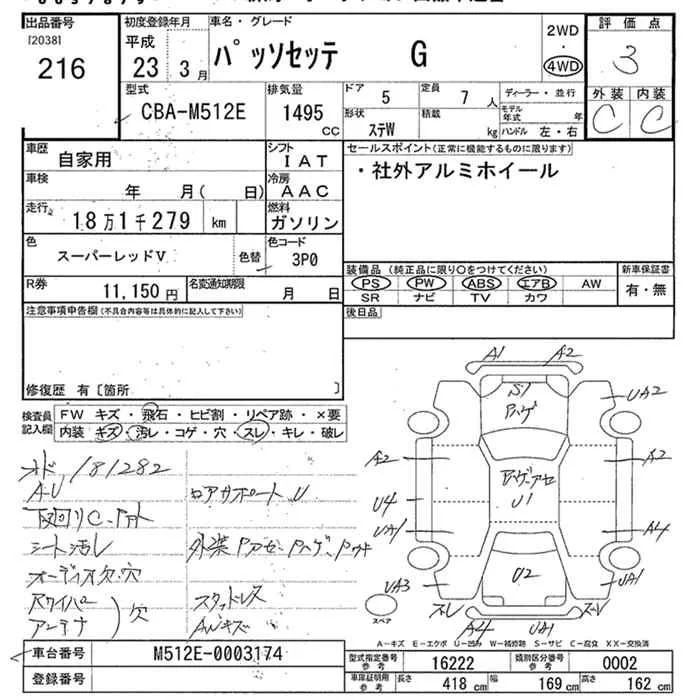 出品番号
[2038]
216
初度登録年月
平成
23 3月
車名・グレード
パッソセッテ G
2WD
・
4WD
評価点
3
型式
CBA-M512E
排気量
1495
CC
ドア
5
定員
7人
ディーラー・並行
形状
ステW
積載
kg
モデル年式 年
ハンドル 左・右
外装 内装
C C
車歴
自家用
シフト
IAT
車検
年 月( 日)
冷房
AAC
走行
18万1千279 km
燃料
ガソリン
色
スーパーレッドV
色替
色コード
3P0
R券
11,150円
名変通知期限
月 日
セールスポイント(正常に機能するものに限ります)
・社外アルミホイール
装備品 (純正品に限り○をつけてください)
PS PW ABS エアB AW
SR ナビ TV カワ
新車保証書
有・無
後日品
注意事項申告欄(不具合内容等は具体的に記入して下さい)
修復歴 有〔箇所 〕
検査員
記入欄
FW キズ・飛石・ヒビ割・リペア跡・×要
内装 キズ・汚レ・コゲ・穴・スレ・キレ・破レ
181282
A-U
ロアサポートU
下回りC
シート汚レ
オーディオ欠.穴
Rワイパー
アンテナ
欠
スタットレス
AWキズ
A1 A2
S1
Pハゲ
UA2
A2
A2
U4
UA1
A4
U1
U2
UA3
UA1
スペア
スレ
スレ
A4
UA1
A-キズ E-エクボ U-凹み W-補修跡 S-サビ C-腐食 XX-交換済
車台番号
M512E-0003174
登録番号
型式指定番号
参考
16222
類別区分番号
参考
0002
車庫証明用
参考
長さ 418 cm 幅 169 cm 高さ 162 cm